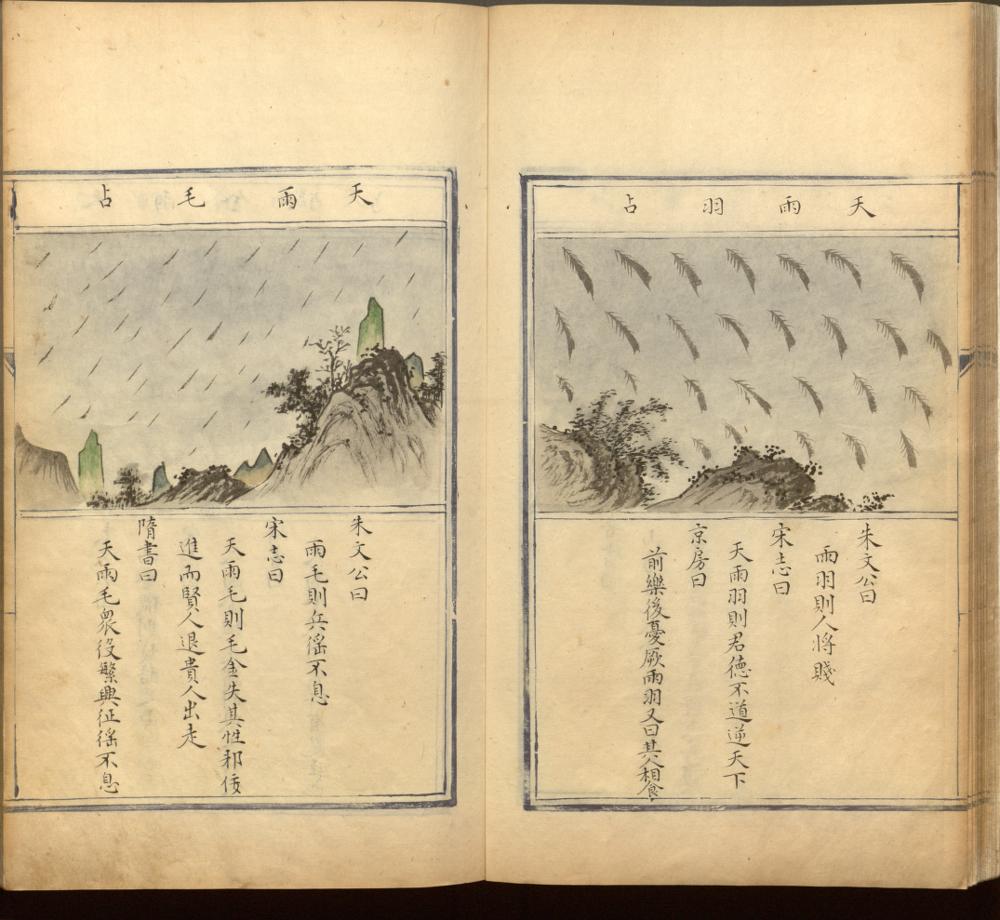 天雨羽占
朱文公曰
雨羽則人將賤
宋志曰
天雨羽則君德不道逆天下
京房曰
前樂後憂厥雨羽又曰其人相食
天雨毛占
朱文公曰
雨毛則兵徭不息
宋志曰
天雨毛則毛金失其性邪佞
進而賢人退貴人出走
隋書曰
天雨毛衆役繁興征徭不息